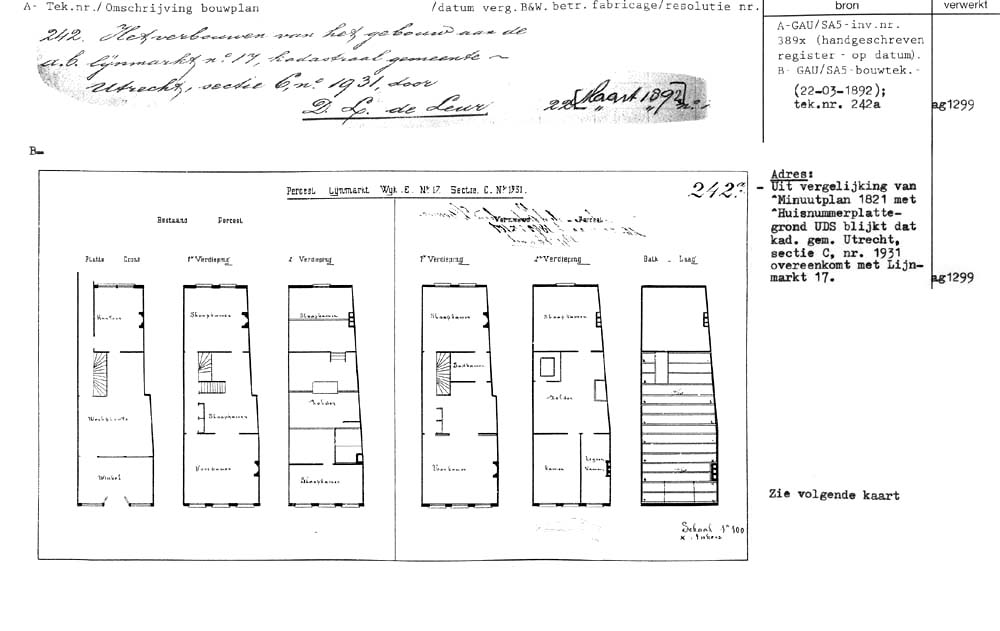 A- Tek.nr./Omschrijving bouwplan /datum verg.B&W. betr. fabricage/resolutie nr. bron verwerkt
242. Het verbouwen van het gebouw aan de
a.b. Lijnmarkt nº 17, kadastraal gemeente ~
Utrecht, sectie C, nº 1931, door
D. L. de Leur. 22 [Maart 1892]
A-GAU/SA5-inv.nr.
389x (handgeschreven
register - op datum).
B- GAU/SA5-bouwtek.-
(22-03-1892);
tek.nr. 242a ag1299
B-
Perceel Lijnmarkt Wyk E. Nº 17. Sectie C. Nº 1931.
242a
Bestaand Perceel
Perceel
Platte Grond 1e Verdieping 2e Verdieping 1e Verdieping 2e Verdieping Balk Laag
Kantoor Slaapkamer Slaapkamer Slaapkamer Slaapkamer
Badkamer
Werkplaats Slaapkamer Zolder Zolder
Winkel Voorkamer Slaapkamer Voorkamer Kamer
Schaal 1 à 100
Adres:
- Uit vergelijking van
^Minuutplan 1821 met
^Huisnummerplatte-
grond UDS blijkt dat
kad. gem. Utrecht,
sectie C, nr. 1931
overeenkomt met Lijn-
markt 17. ag1299
Zie volgende kaart